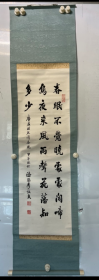 春眠不覺曉處處聞啼
鳥夜來風雨聲花落知
多少